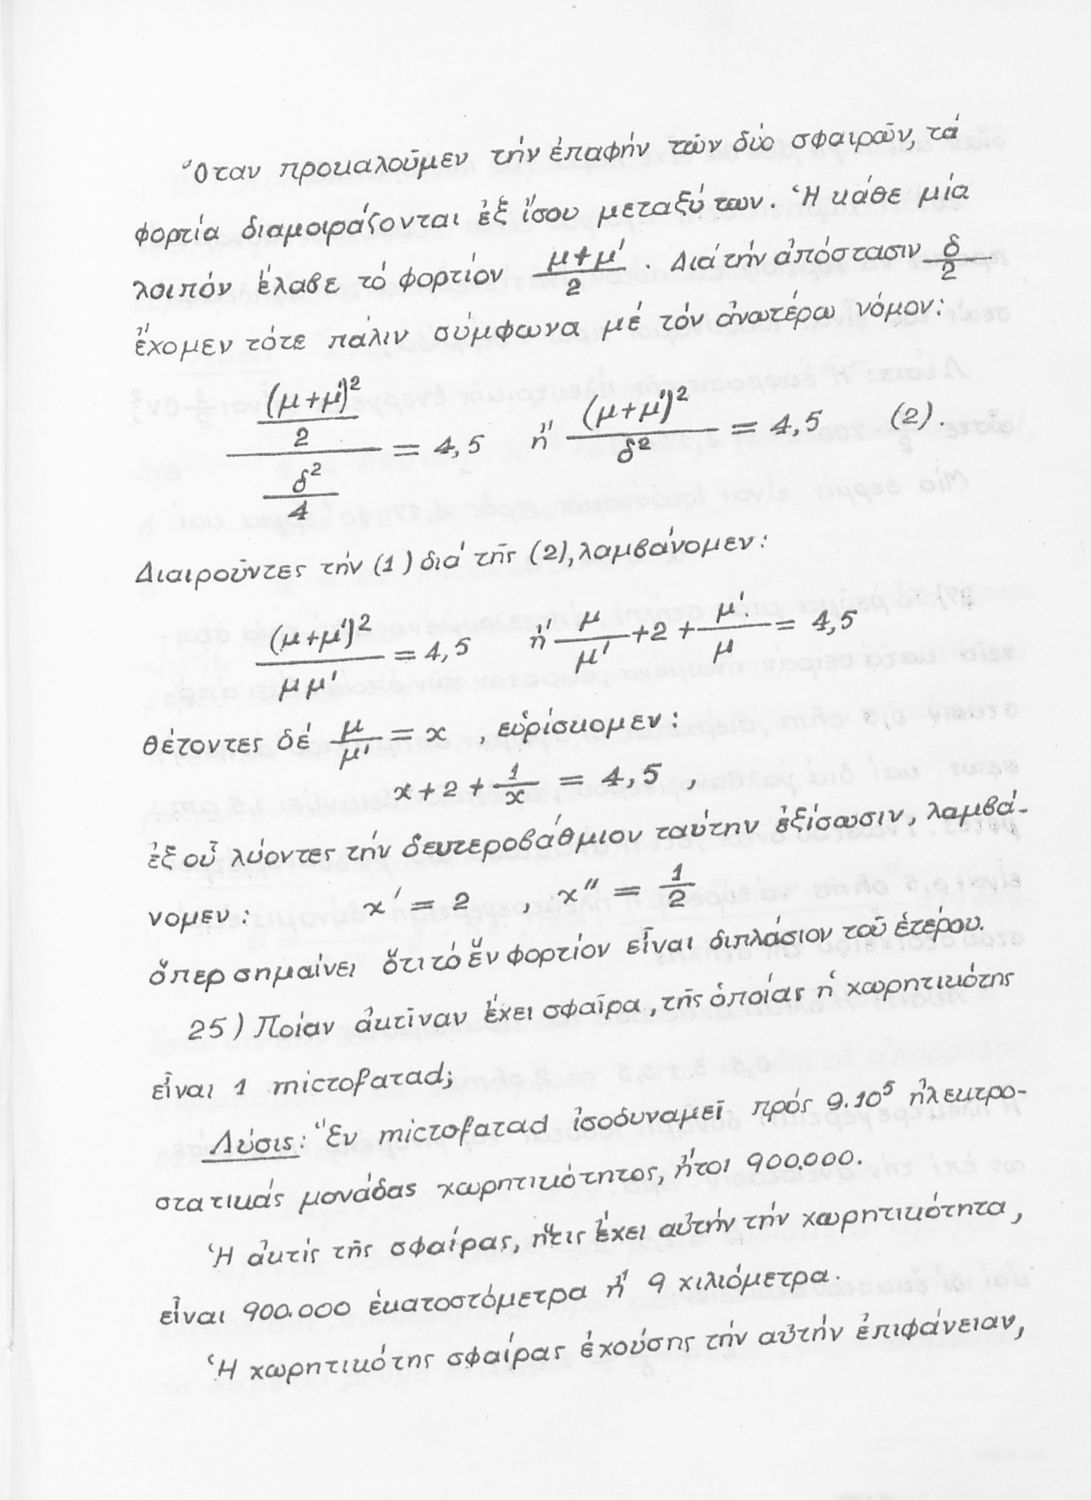 Ὅταν προκαλοῦμεν τήν ἐπαφήν τῶν δύο σφαιρῶν, τά
φορτία διαμοιράζονται ἐξ ἴσου μεταξύ των. Ἡ κάθε μία
λοιπόν ἔλαβε τό φορτίον (μ+μ')/2 . Διά τήν ἀπόστασιν δ/2
ἔχομεν τότε πάλιν σύμφωνα μέ τόν ἀνωτέρω νόμον:
((μ+μ')²/2)/(δ²/4) = 4,5 ἤ (μ+μ')²/δ² = 4,5 (2).
Διαιροῦντες τήν (1) διά τῆς (2), λαμβάνομεν:
(μ+μ')²/μμ' = 4,5 ἤ μ/μ' + 2 + μ'/μ = 4,5
θέτοντες δέ μ/μ' = x , εὑρίσκομεν:
x + 2 + 1/x = 4,5 ,
ἐξ οὗ λύοντες τήν δευτεροβάθμιον ταύτην ἐξίσωσιν, λαμβά-
νομεν: x' = 2 , x'' = 1/2
ὅπερ σημαίνει ὅτι τό ἕν φορτίον εἶναι διπλάσιον τοῦ ἑτέρου.
25) Ποίαν ἀκτῖναν ἔχει σφαῖρα, τῆς ὁποίας ἡ χωρητικότης
εἶναι 1 microfarad;
Λύσις: Ἕν microfarad ἰσοδυναμεῖ πρός 9.10⁵ ἠλεκτρο-
στατικάς μονάδας χωρητικότητος, ἤτοι 900.000.
Ἡ ἀκτίς τῆς σφαίρας, ἥτις ἔχει αὐτήν τήν χωρητικότητα,
εἶναι 900.000 ἑκατοστόμετρα ἤ 9 χιλιόμετρα.
Ἡ χωρητικότης σφαίρας ἐχούσης τήν αὐτήν ἐπιφάνειαν,